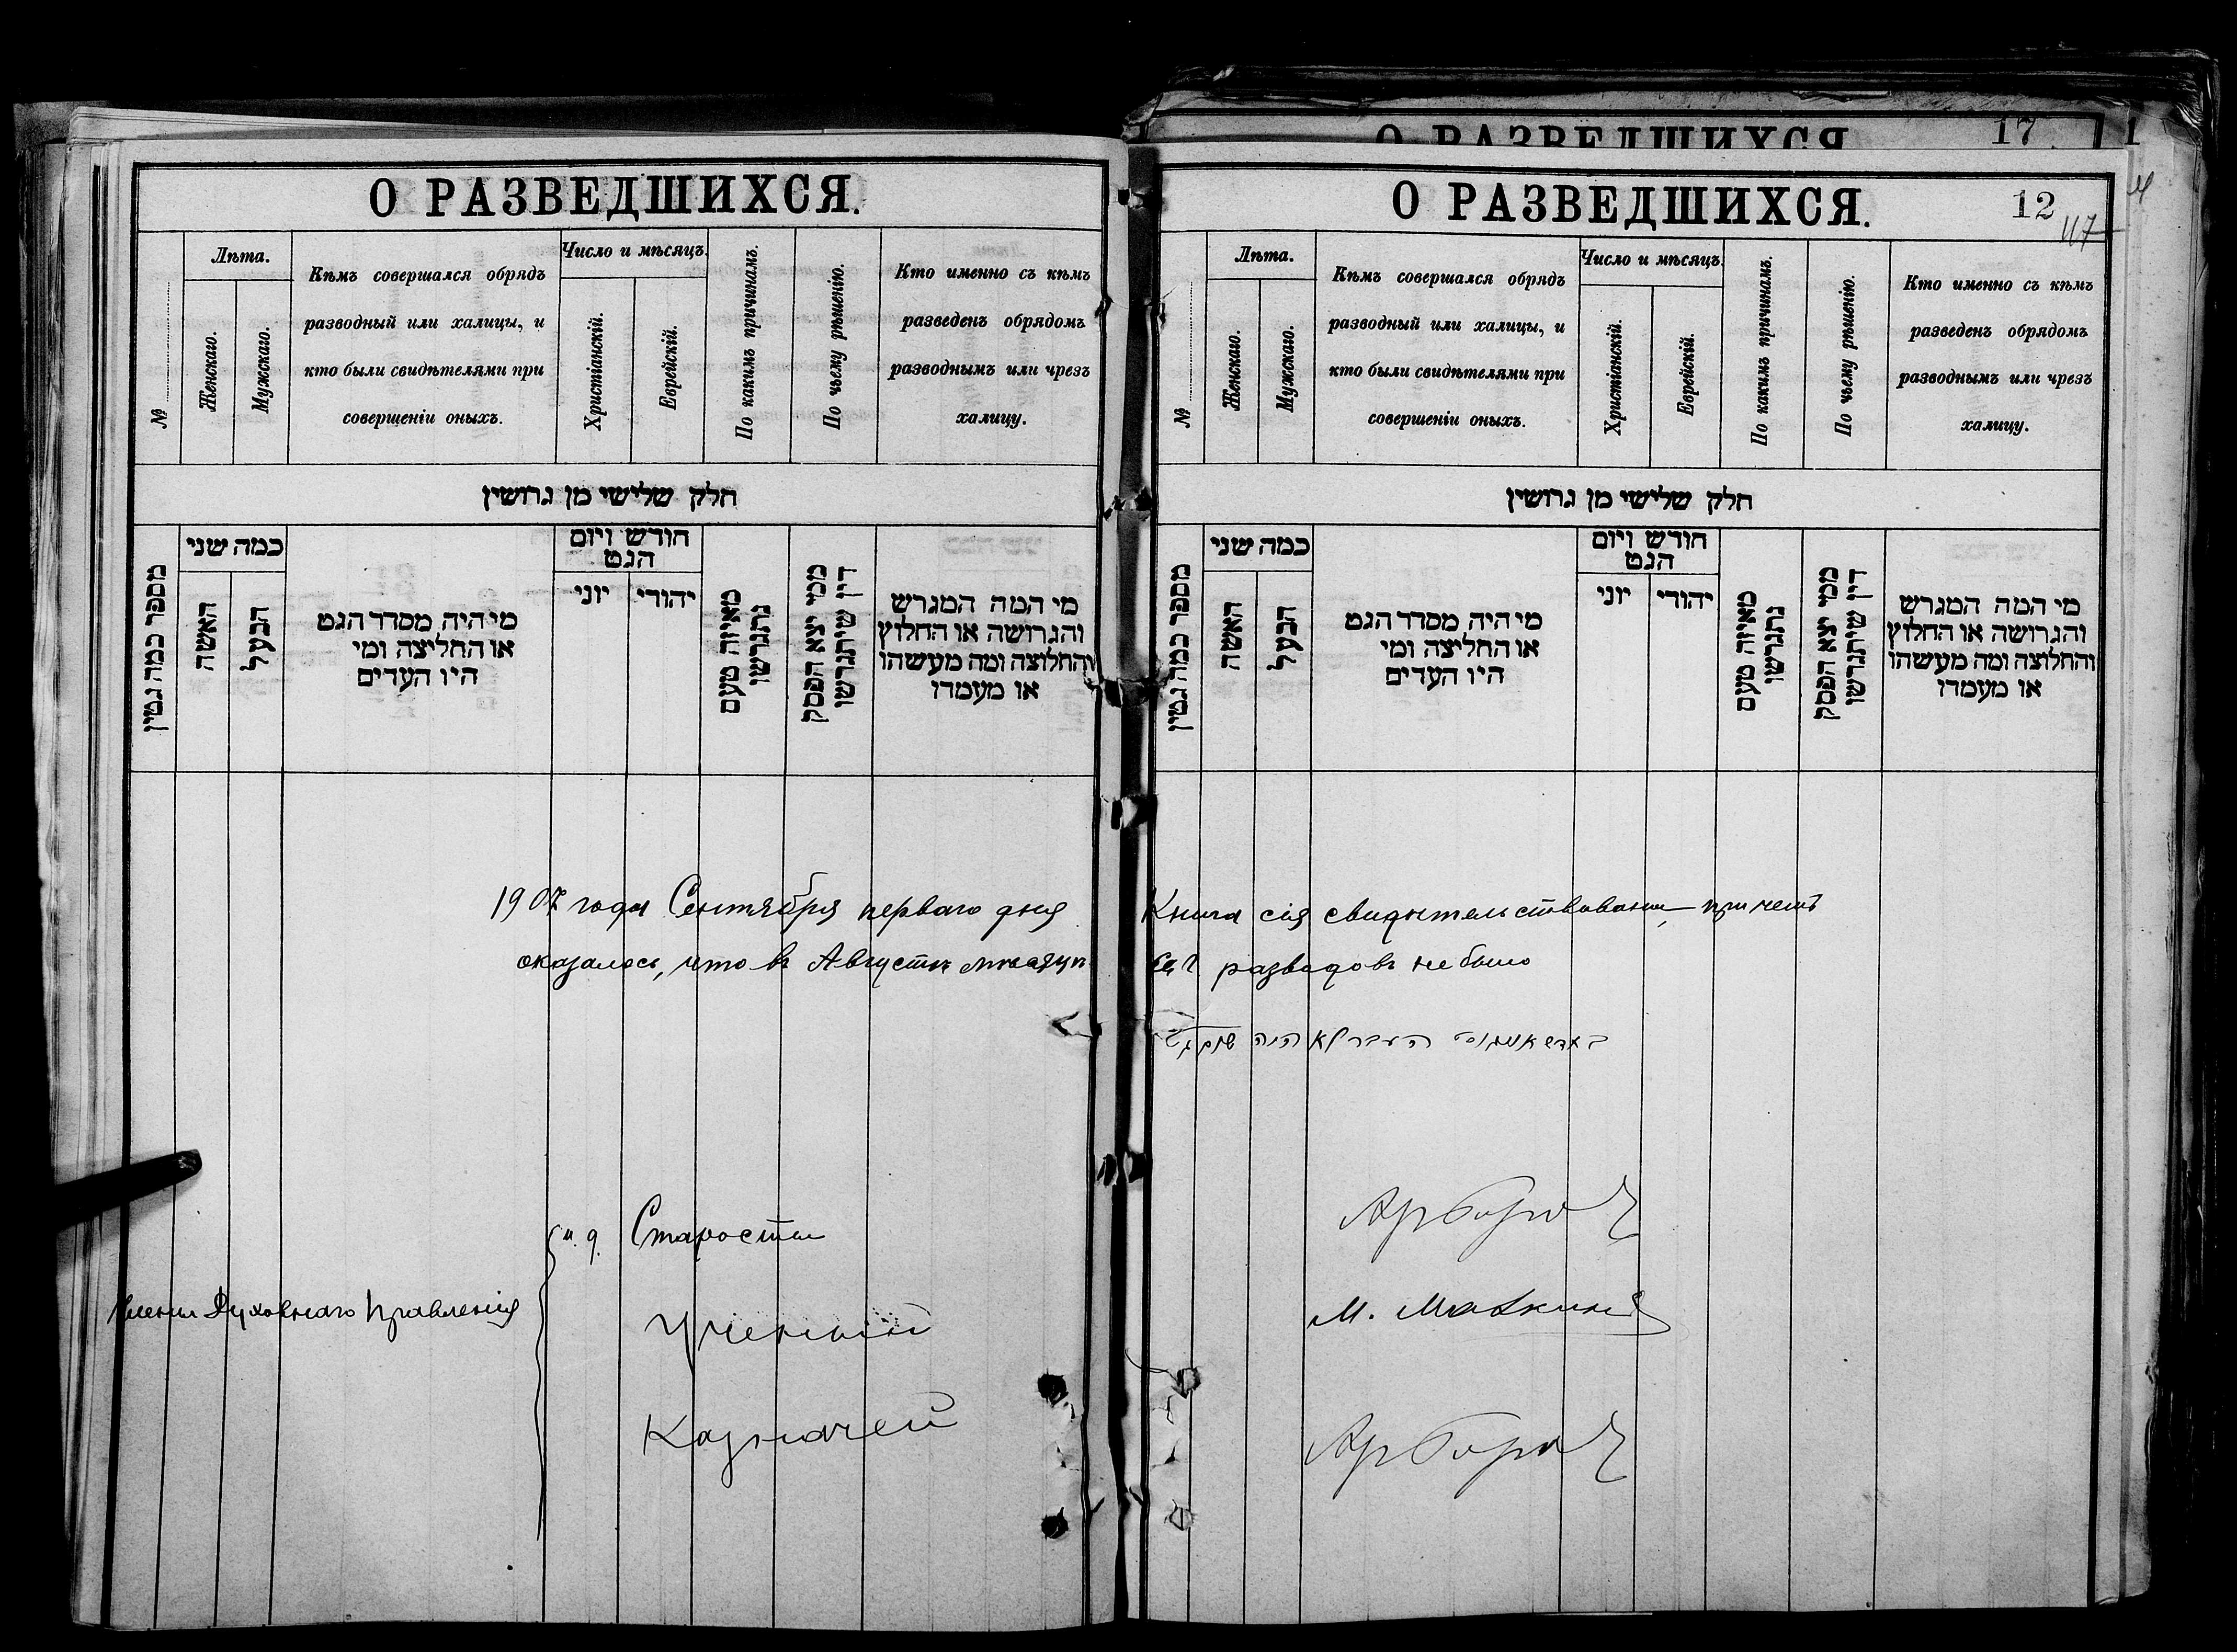 О РАЗВЕДШИХСЯ.
№
Лѣта.
Женскаго.
Мужскаго.
Кѣмъ совершался обрядъ
разводный или халицы, и
кто были свидѣтелями при
совершеніи оныхъ.
Число и мѣсяцъ.
Христіанскій.
Еврейскій.
По какимъ причинамъ.
По чьему рѣшенію.
Кто именно съ кѣмъ
разведенъ обрядомъ
разводнымъ или чрезъ
халицу.
חלק שלישי מן גרושין
מספר כמה גטין
כמה שני
האשה
הבעל
מי היה מסדר הגט
או החליצה ומי
היו העדים
חודש ויום
הגט
יוני
יהודי
מאיזה טעם
נתגרשו
ממי יצא הפסק
דין שיתגרשו
מי המה המגרש
והגרושה או החלוץ
והחלוצה ומה מעשהו
או מעמדו
О РАЗВЕДШИХСЯ
17
О РАЗВЕДШИХСЯ.
12
117
№
Лѣта.
Женскаго.
Мужскаго.
Кѣмъ совершался обрядъ
разводный или халицы, и
кто были свидѣтелями при
совершеніи оныхъ.
Число и мѣсяцъ.
Христіанскій.
Еврейскій.
По какимъ причинамъ.
По чьему рѣшенію.
Кто именно съ кѣмъ
разведенъ обрядомъ
разводнымъ или чрезъ
халицу.
חלק שלישי מן גרושין
מספר כמה גטין
כמה שני
האשה
הבעל
מי היה מסדר הגט
או החליצה ומי
היו העדים
חודש ויום
הגט
יוני
יהודי
מאיזה טעם
נתגרשו
ממי יצא הפסק
דין שיתגרשו
מי המה המגרש
והגרושה או החלוץ
והחלוצה ומה מעשהו
או מעמדו
1907 года Сентября перваго дня Книга сія свидѣтельствована, при чемъ
оказалось, что въ Августѣ мѣсяцѣ с/г разводовъ не было
בחדש אויגוסט העבר לא היה שום גט
и. д. Старосты
Члены Духовнаго Правленія
Ученый
М. Маткинъ
Казначей